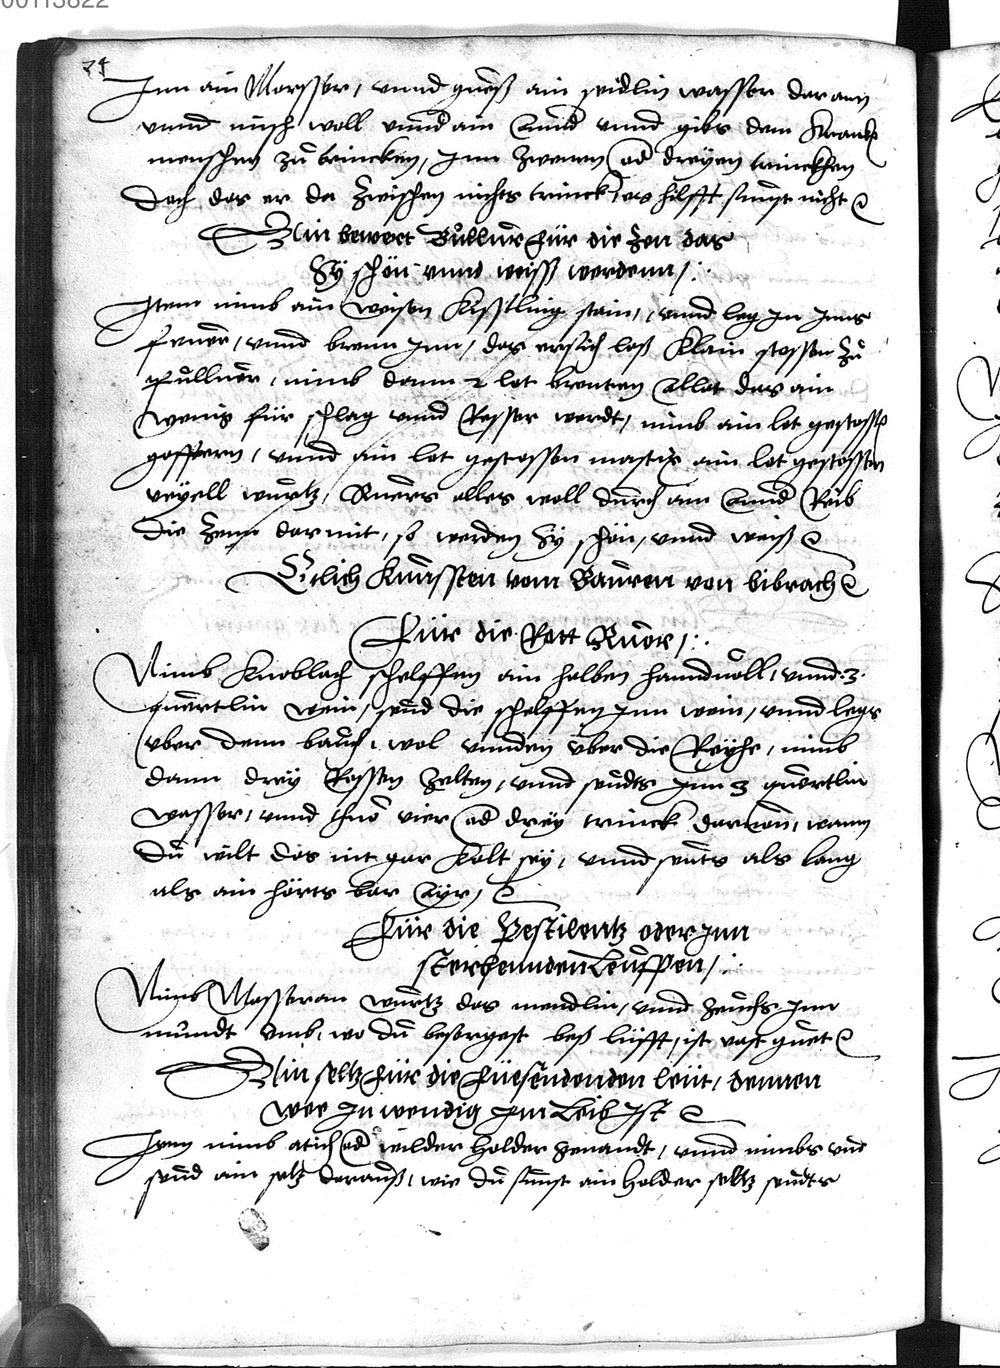 00113822
24
Inn ain Morsser, vnnd gueß ain seidlin wasser dar ann
vnnd misch woll vnnd ain annd vnnd gibs dem Kranck
menschen zů trincken, Inn zwenen od dreyen trinckhen
Doch das er da Zwischen nichts trinck, es hilfft sunst nicht
Ain bewert Bulluer für die Zen das
Sÿ schön vnnd weiss werdenn /:
Item nimb ain weisen Kisstling stain, vnnd leg In Inns
feuer, vnnd brenn Inn, das erstlich laß Klain stossen Zů
Pulluer, nimb dann 2 lot brenten Allet das ain
wenig für schlag vnnd Resser werdt, nimb ain lot gestossen
goffern, vnnd ain lot gestossen mastix ain lot gestossen
veyell wurtz, Ruers alles woll durch ain annd Reib
die Zenn darmit, so werden Sÿ schön, vnnd weiß
Etlich Kunssten vom Bauren von bibrach
Für die Rott Ruor /:
Nimb Knoblach schelffen ain halben hanndtuoll, vnnd 3
quertlin wein, seud die schelffen Inn wein, vnnd legs
vber denn bauch, wol vnnden vber die Reyhe, nimb
dann dreÿ Zelten, vnnd seudts Inn 3 quertlin
wasser, vnnd thuo vier od dreÿ trinck daruon, wann
Du wilt das nit gar Kalt seÿ, vnnd seuts als lang
als ain hörts bar Ayr /
Für die Pestilentz oder Inn
sterbenden Leuffen /:
Nimb Masteran wurtz das mendlin, vnnd zeuchs Inn
mundt vmb, wo du besorgest beß lüfft, ist vast guet
Ain seltz für die leüt, dennen
wee Inwendig Im Leib Ist
Item nimb atich od wilder holder genandt, vnnd nimbs vnd
seud ain seltz darauß, wie du sunst ain holder seltz seudts